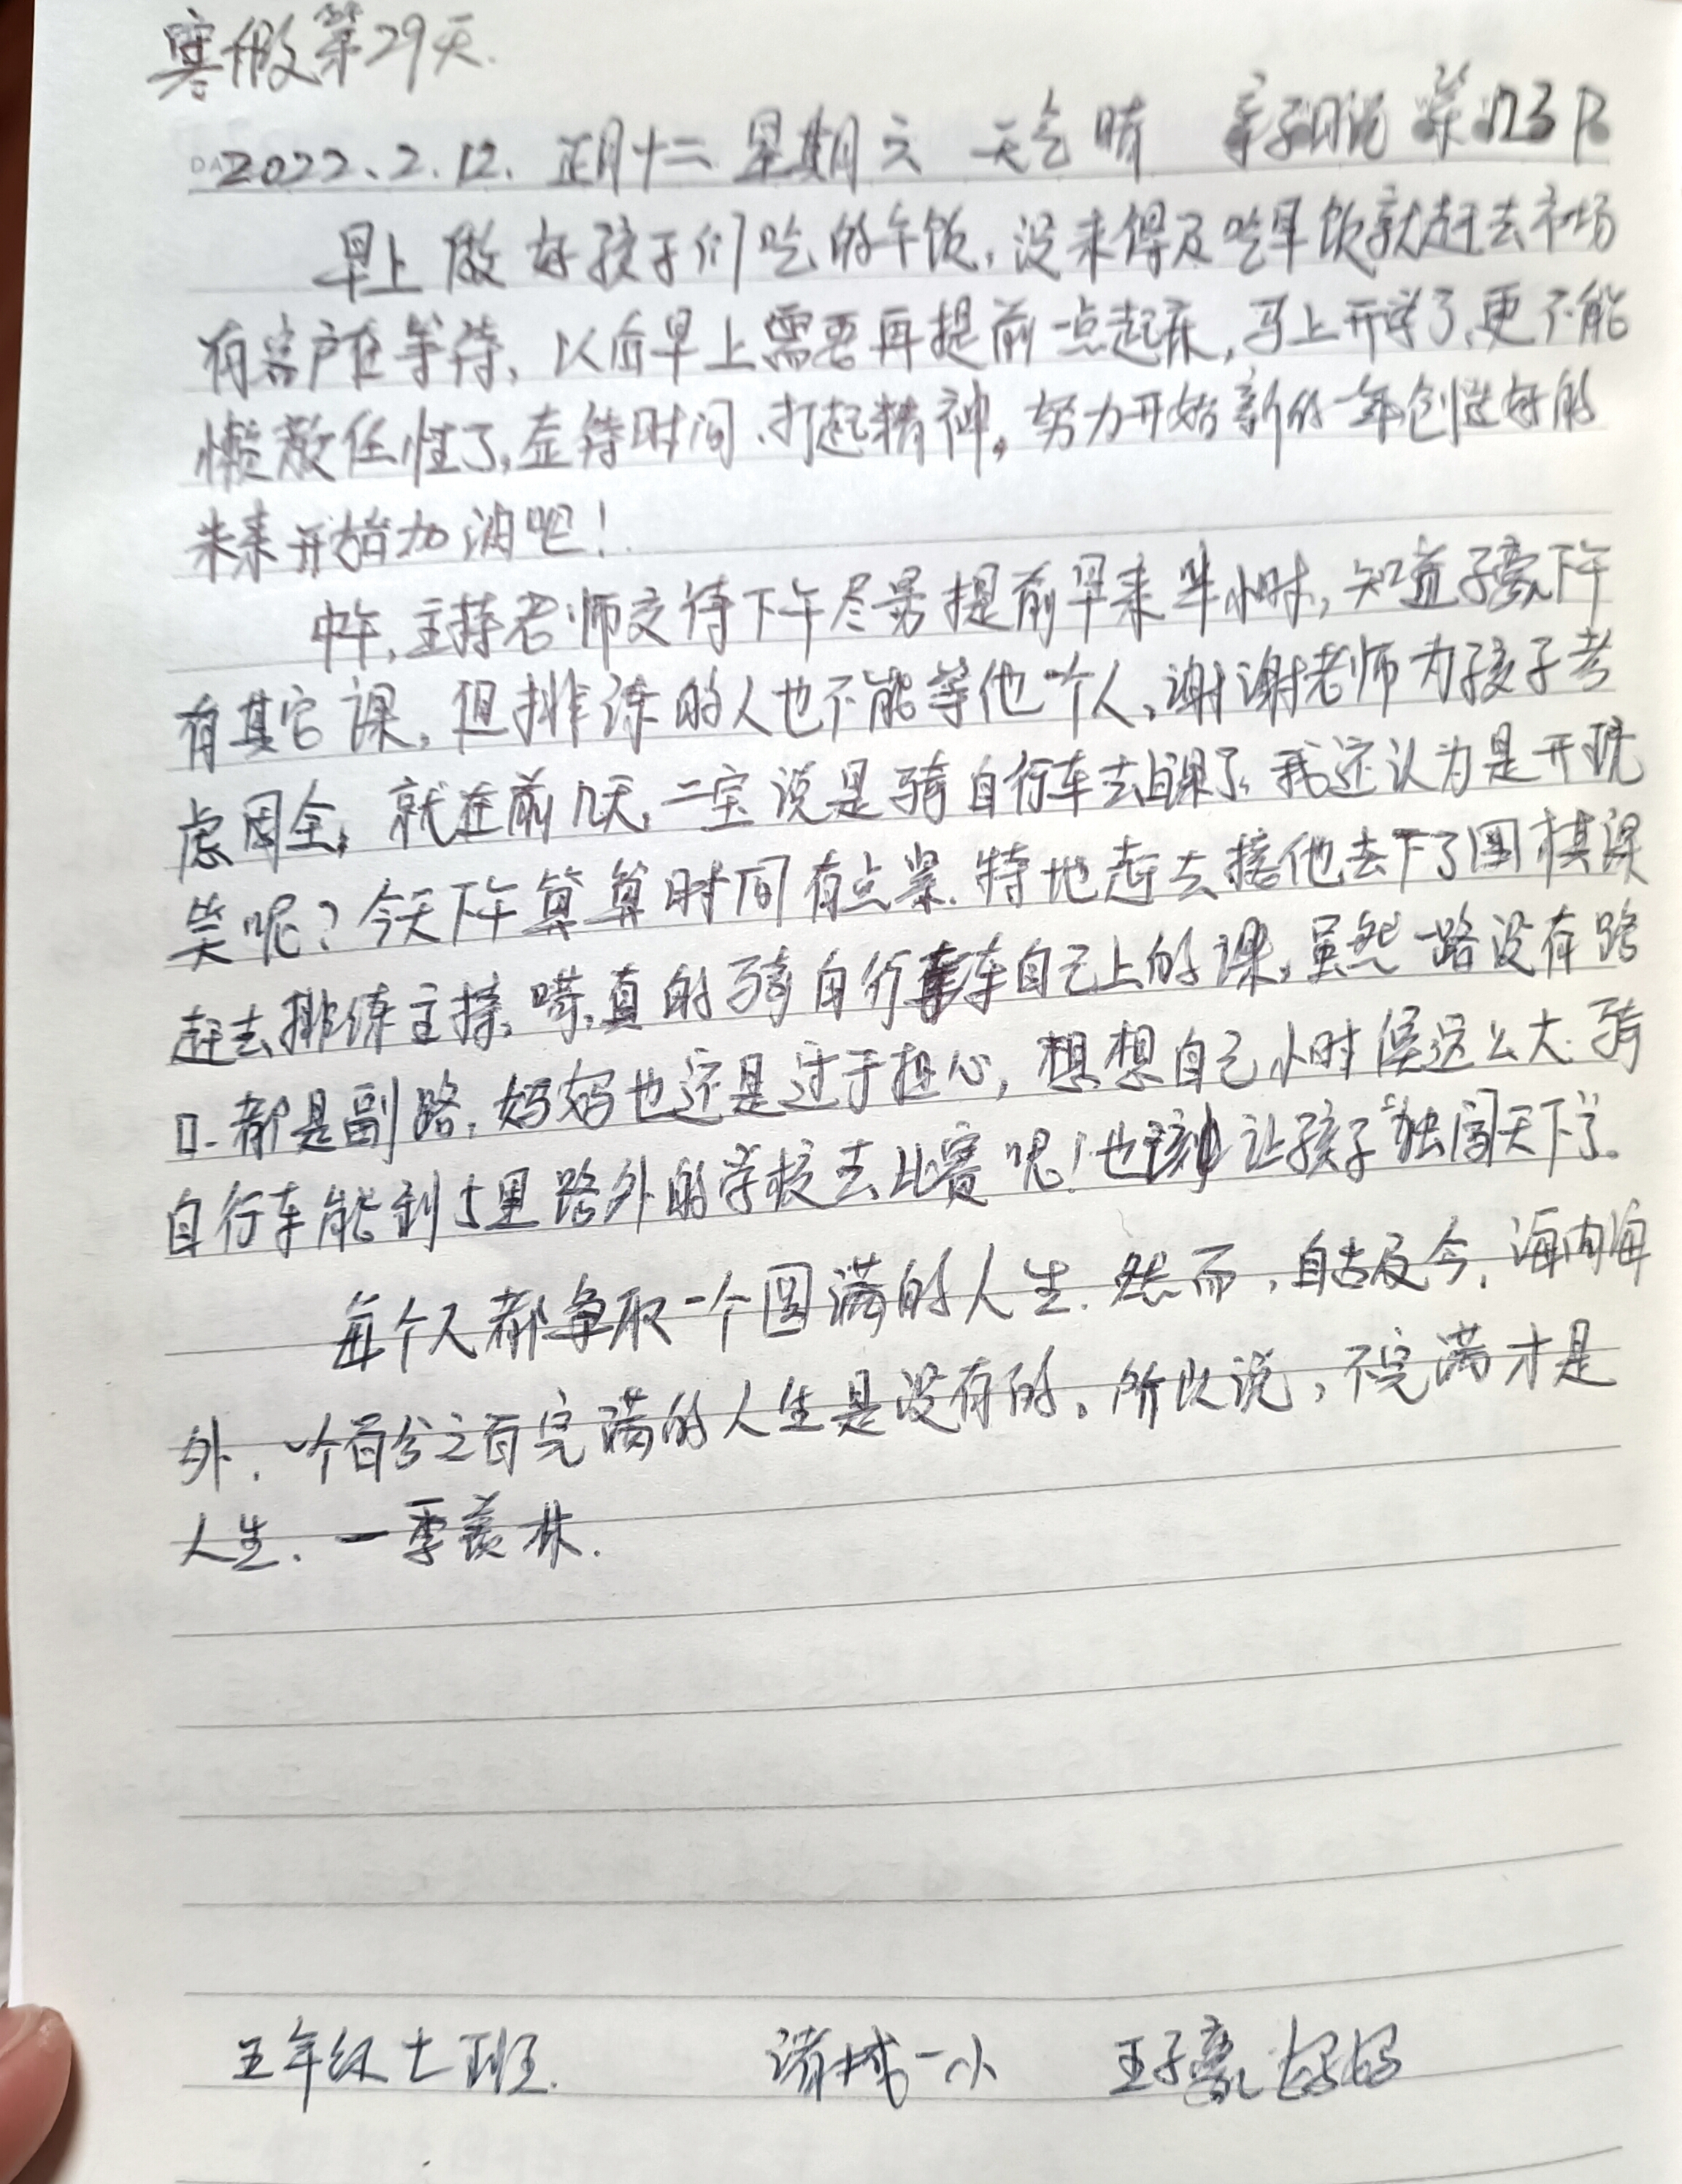 寒假第29天.
2022.2.12. 正月十二 星期六 天气晴 亲子日记 第
早上做好孩子们吃的午饭，没来得及吃早饭就赶去市场
有客户在等待，以后早上需要再提前一点起床，马上开学了，更不能
懒散任性了，查符时间、打起精神。努力开始新的一年创造好的
未来开始加油吧！
中午，主持老师交待下午尽量提前早来半小时，知道子豪下午
有其它课，但排练的人也不能等他一个人，谢谢老师为孩子考
虑周全，就在前几天，二宝说是骑自行车去上课了，我还认为是开玩
笑呢？今天下午算算时间有点紧，特地赶去接他去下了围棋课
赶去排练主持，嗬，真的骑自行车自己上的课，虽然一路没有路
口，都是副路，妈妈也还是过于担心，想想自己小时侯这么大骑
自行车能到5里路外的学校去比赛呢！也该让孩子“独闯天下”了。
每个人都争取一个圆满的人生．然而，自古及今，海内海
外，一个百分之百完满的人生是没有的。所以说，不完满才是
人生．一季羡林．
五年级七班． 诸城一小 王子豪妈妈